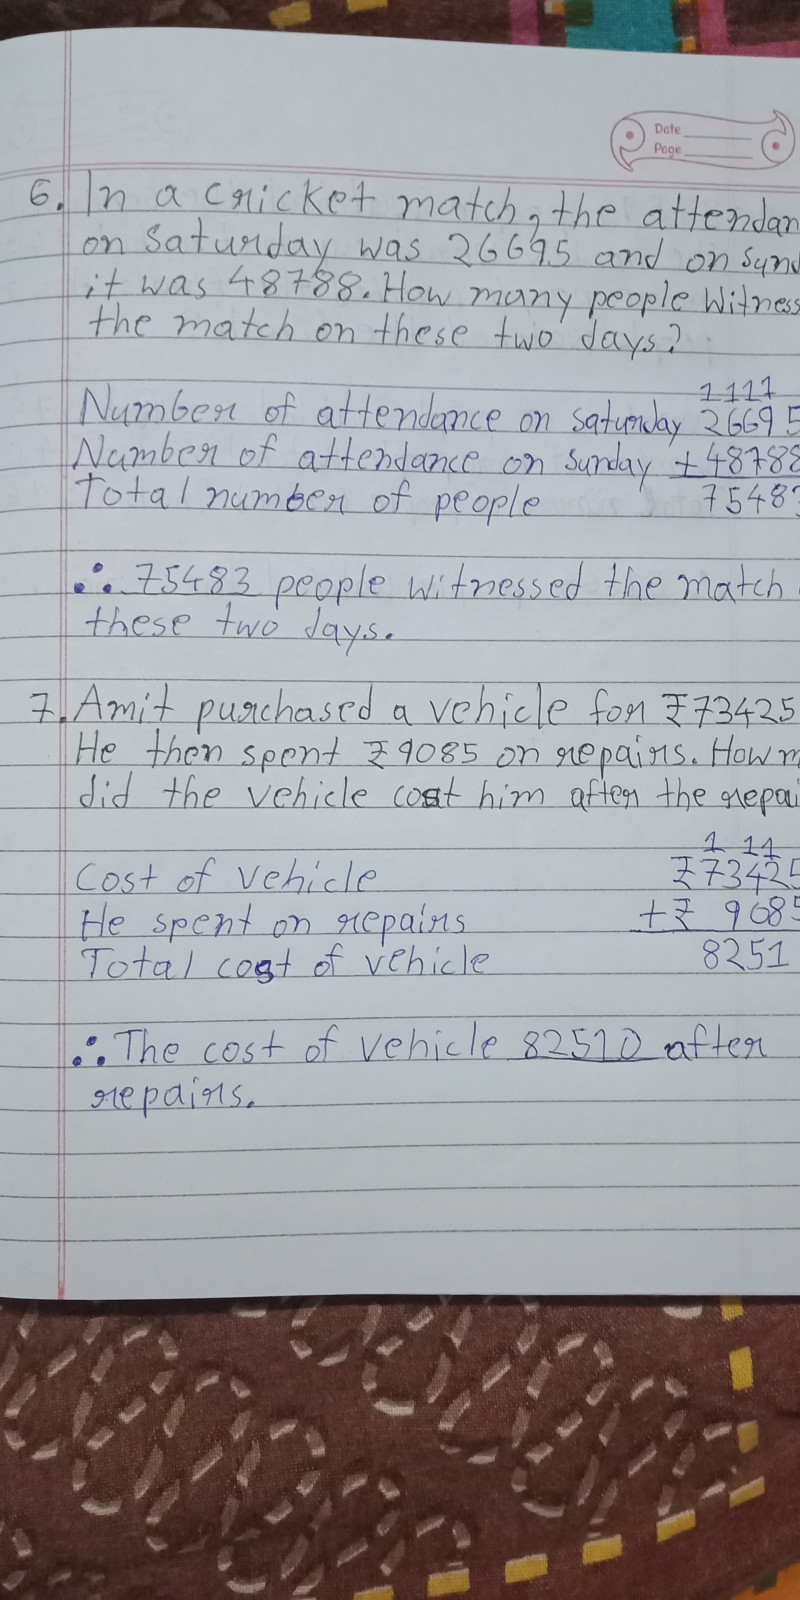 Date
Page
6. In a cricket match, the attendan
on Saturday was 26695 and on Sund
it was 48788. How many people Witness
the match on these two days?
1 1 1 1
Number of attendance on saturday 26695
Number of attendance on Sunday +48788
Total number of people 7548
∴ 75483 people witnessed the match
these two days.
7. Amit purchased a vehicle for ₹73425
He then spent ₹9085 on repairs. How m
did the vehicle cost him after the repai
1 1 1
Cost of vehicle ₹73425
He spent on repairs +₹ 9085
Total cost of vehicle 8251
∴ The cost of vehicle 82510 after
repairs.